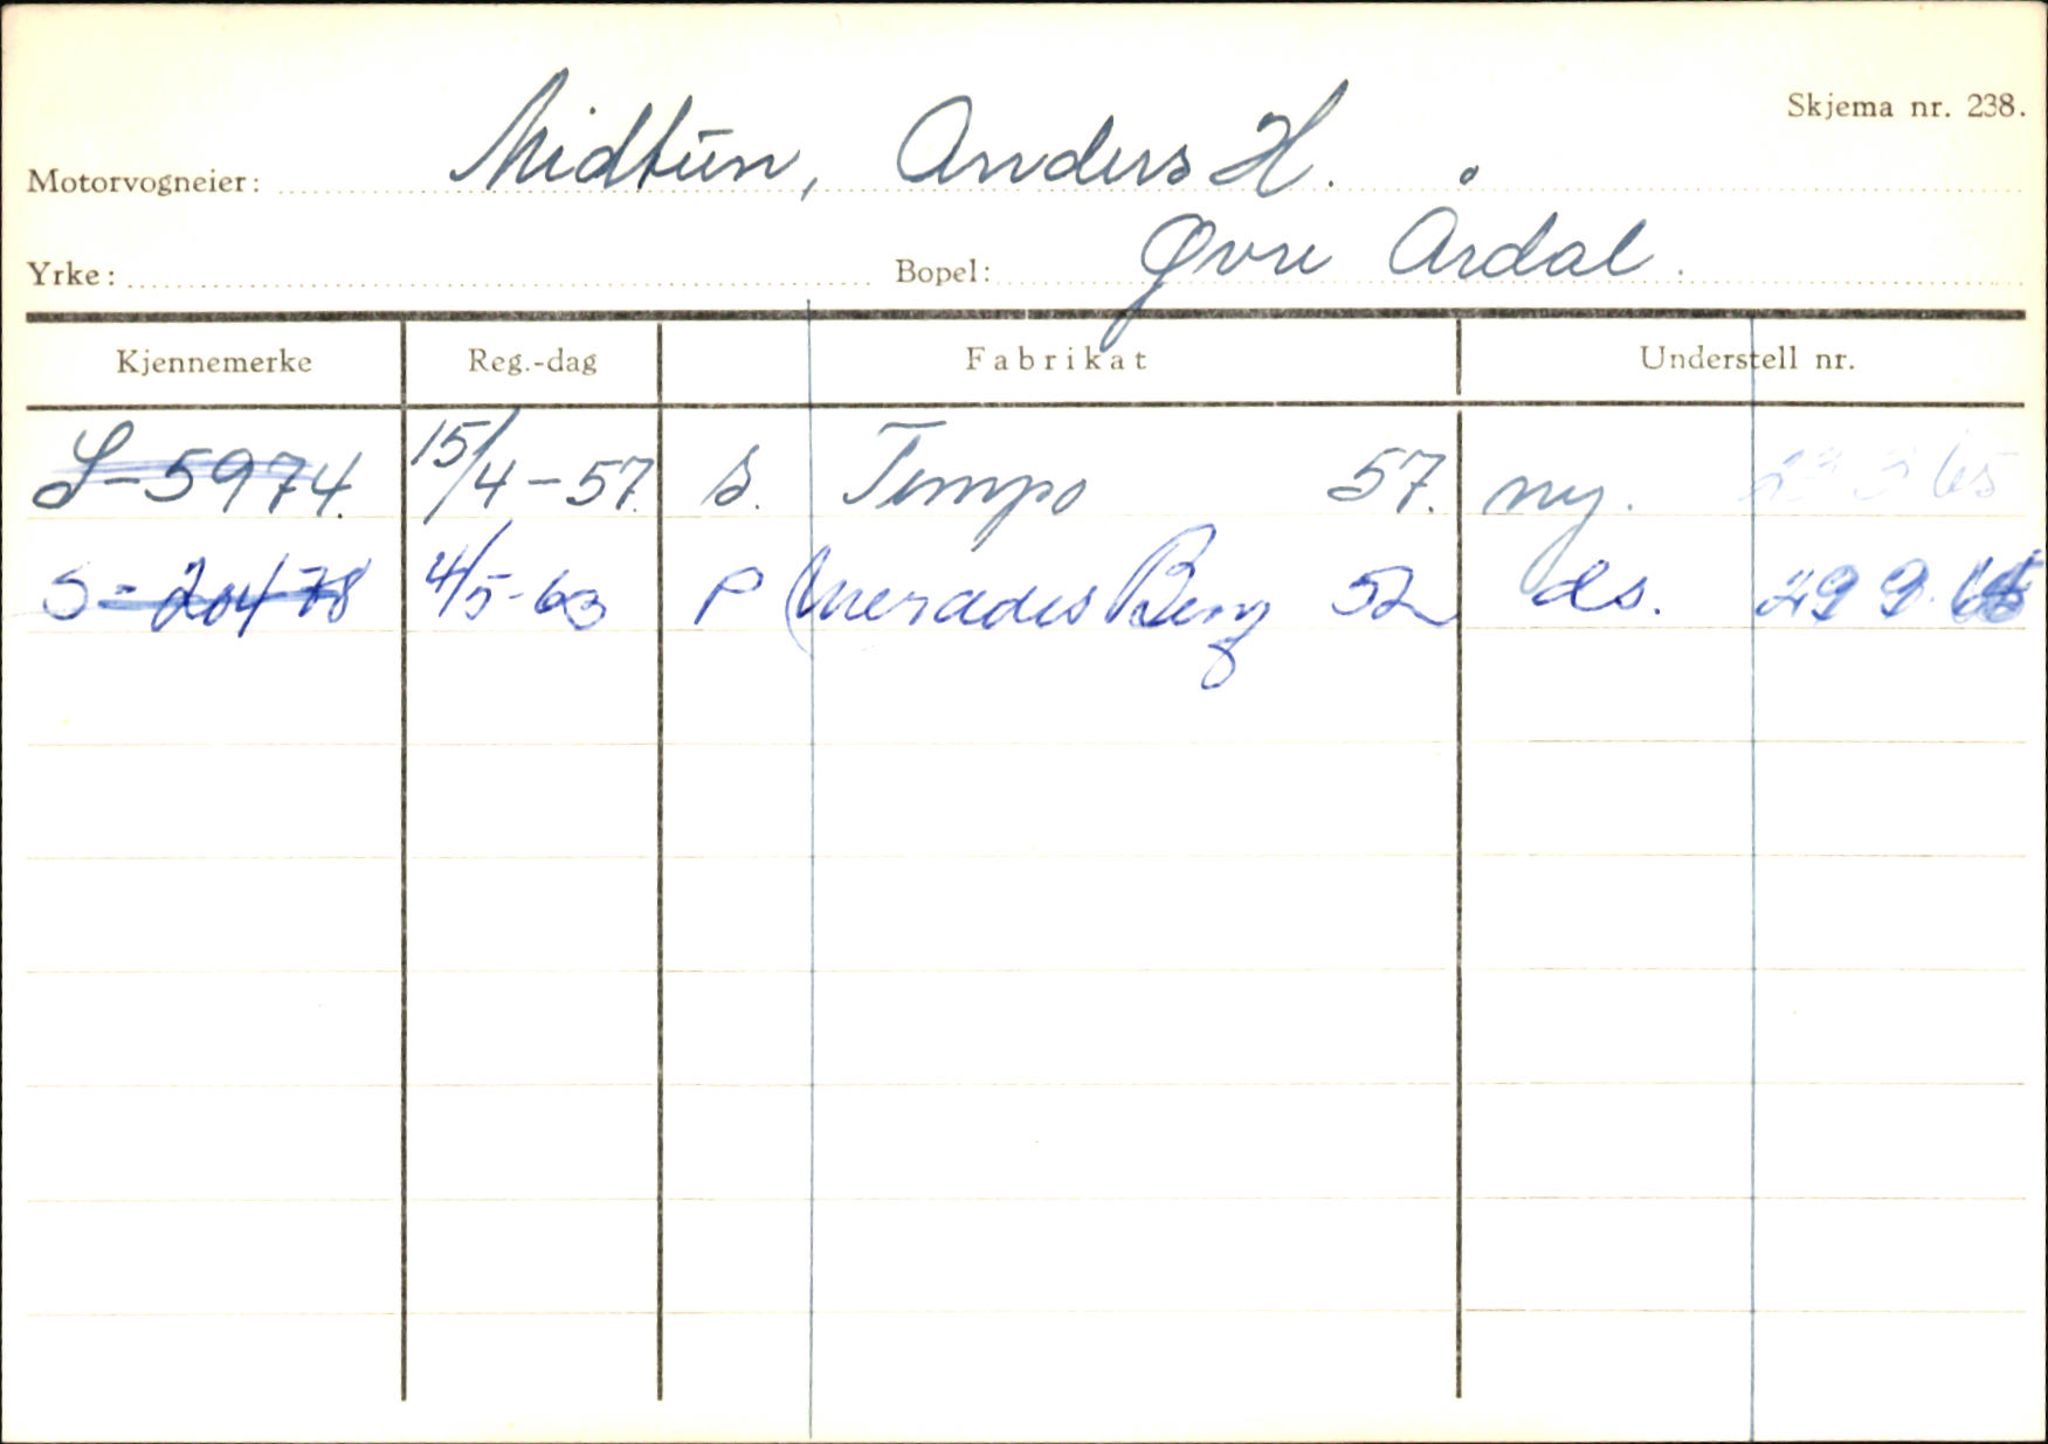 Skjema nr. 238.
Motorvogneier: Midtun, Anders H.
Yrke: Bopel: Øvre Årdal.
Kjennemerke Reg.-dag Fabrikat Understell nr.
S-5974. 15/4-57. s. Tempo 57. ny. 23 3 65
S-20478 4/5-63 P Mercedes Benz 52 ds. 29 9